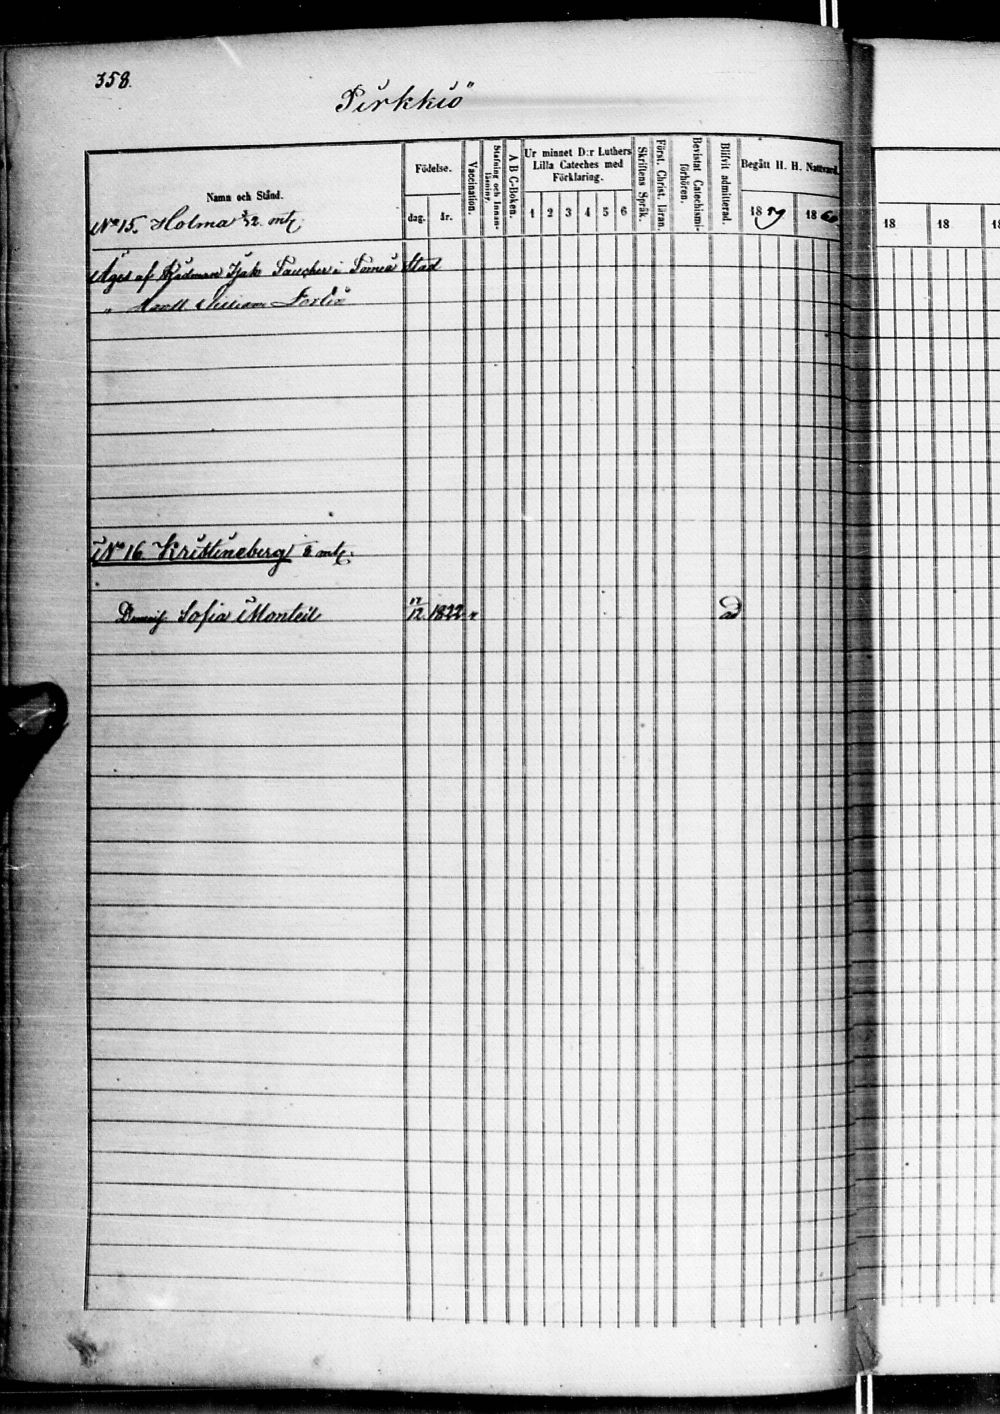 358.
Pirkkiö
Namn och Stånd.
Födelse.
dag. år.
Vaccination.
Stafning och Innan-läsning.
A B C-Boken.
Ur minnet D:r Luthers
Lilla Cateches med
Förklaring.
1 2 3 4 5 6
Skriftens Språk.
Först. Christ. läran.
Bevistat Catechismi-förhören.
Blifvit admitterad.
Begått H. H. Nattvard.
1859 1860
18 18 18
No 15. Holma mtl.
Äges af Rådman Isak i Torneå Stad
" 
No 16. Kristineberg mtl.
Sofia Monteil 12/12 1822 ad